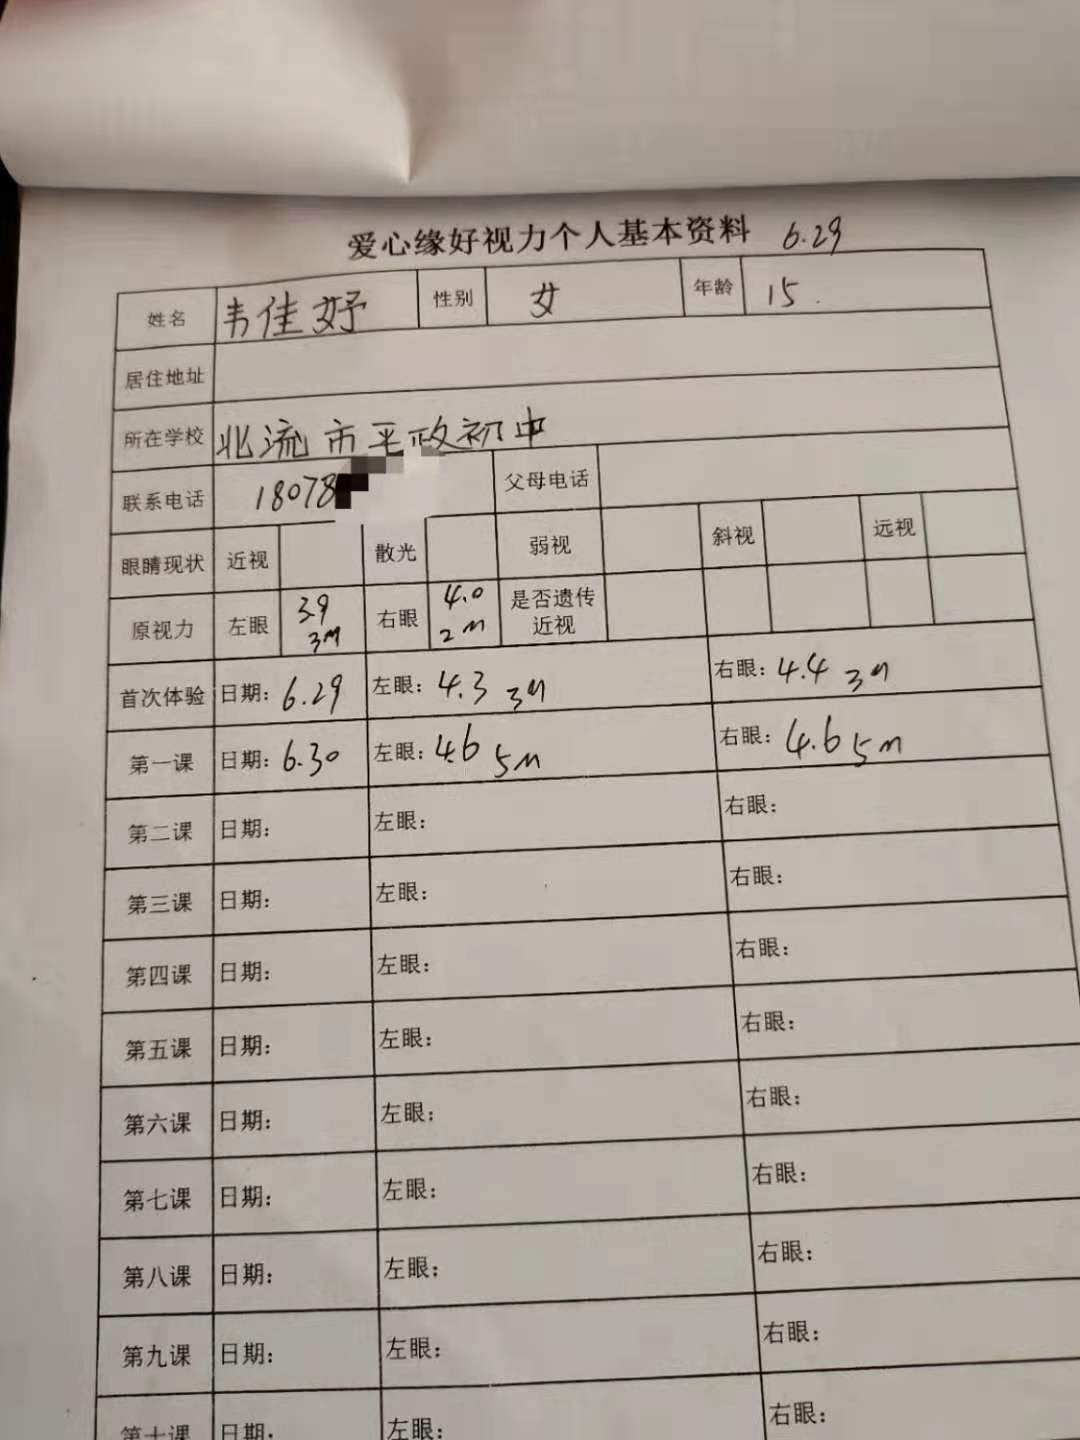 爱心缘好视力个人基本资料 6.29
姓名 韦佳妤 性别 女 年龄 15.
居住地址
所在学校 北流市平政初中
联系电话 18078 父母电话
眼睛现状 近视 散光 弱视 斜视 远视
原视力 左眼 3.9 3M 右眼 4.0 2M 是否遗传近视
首次体验 日期: 6.29 左眼: 4.3 3M 右眼: 4.4 3M
第一课 日期: 6.30 左眼: 4.6 5M 右眼: 4.6 5M
第二课 日期: 左眼: 右眼:
第三课 日期: 左眼: 右眼:
第四课 日期: 左眼: 右眼:
第五课 日期: 左眼: 右眼:
第六课 日期: 左眼: 右眼:
第七课 日期: 左眼: 右眼:
第八课 日期: 左眼: 右眼:
第九课 日期: 左眼: 右眼:
第十课 日期: 左眼: 右眼: